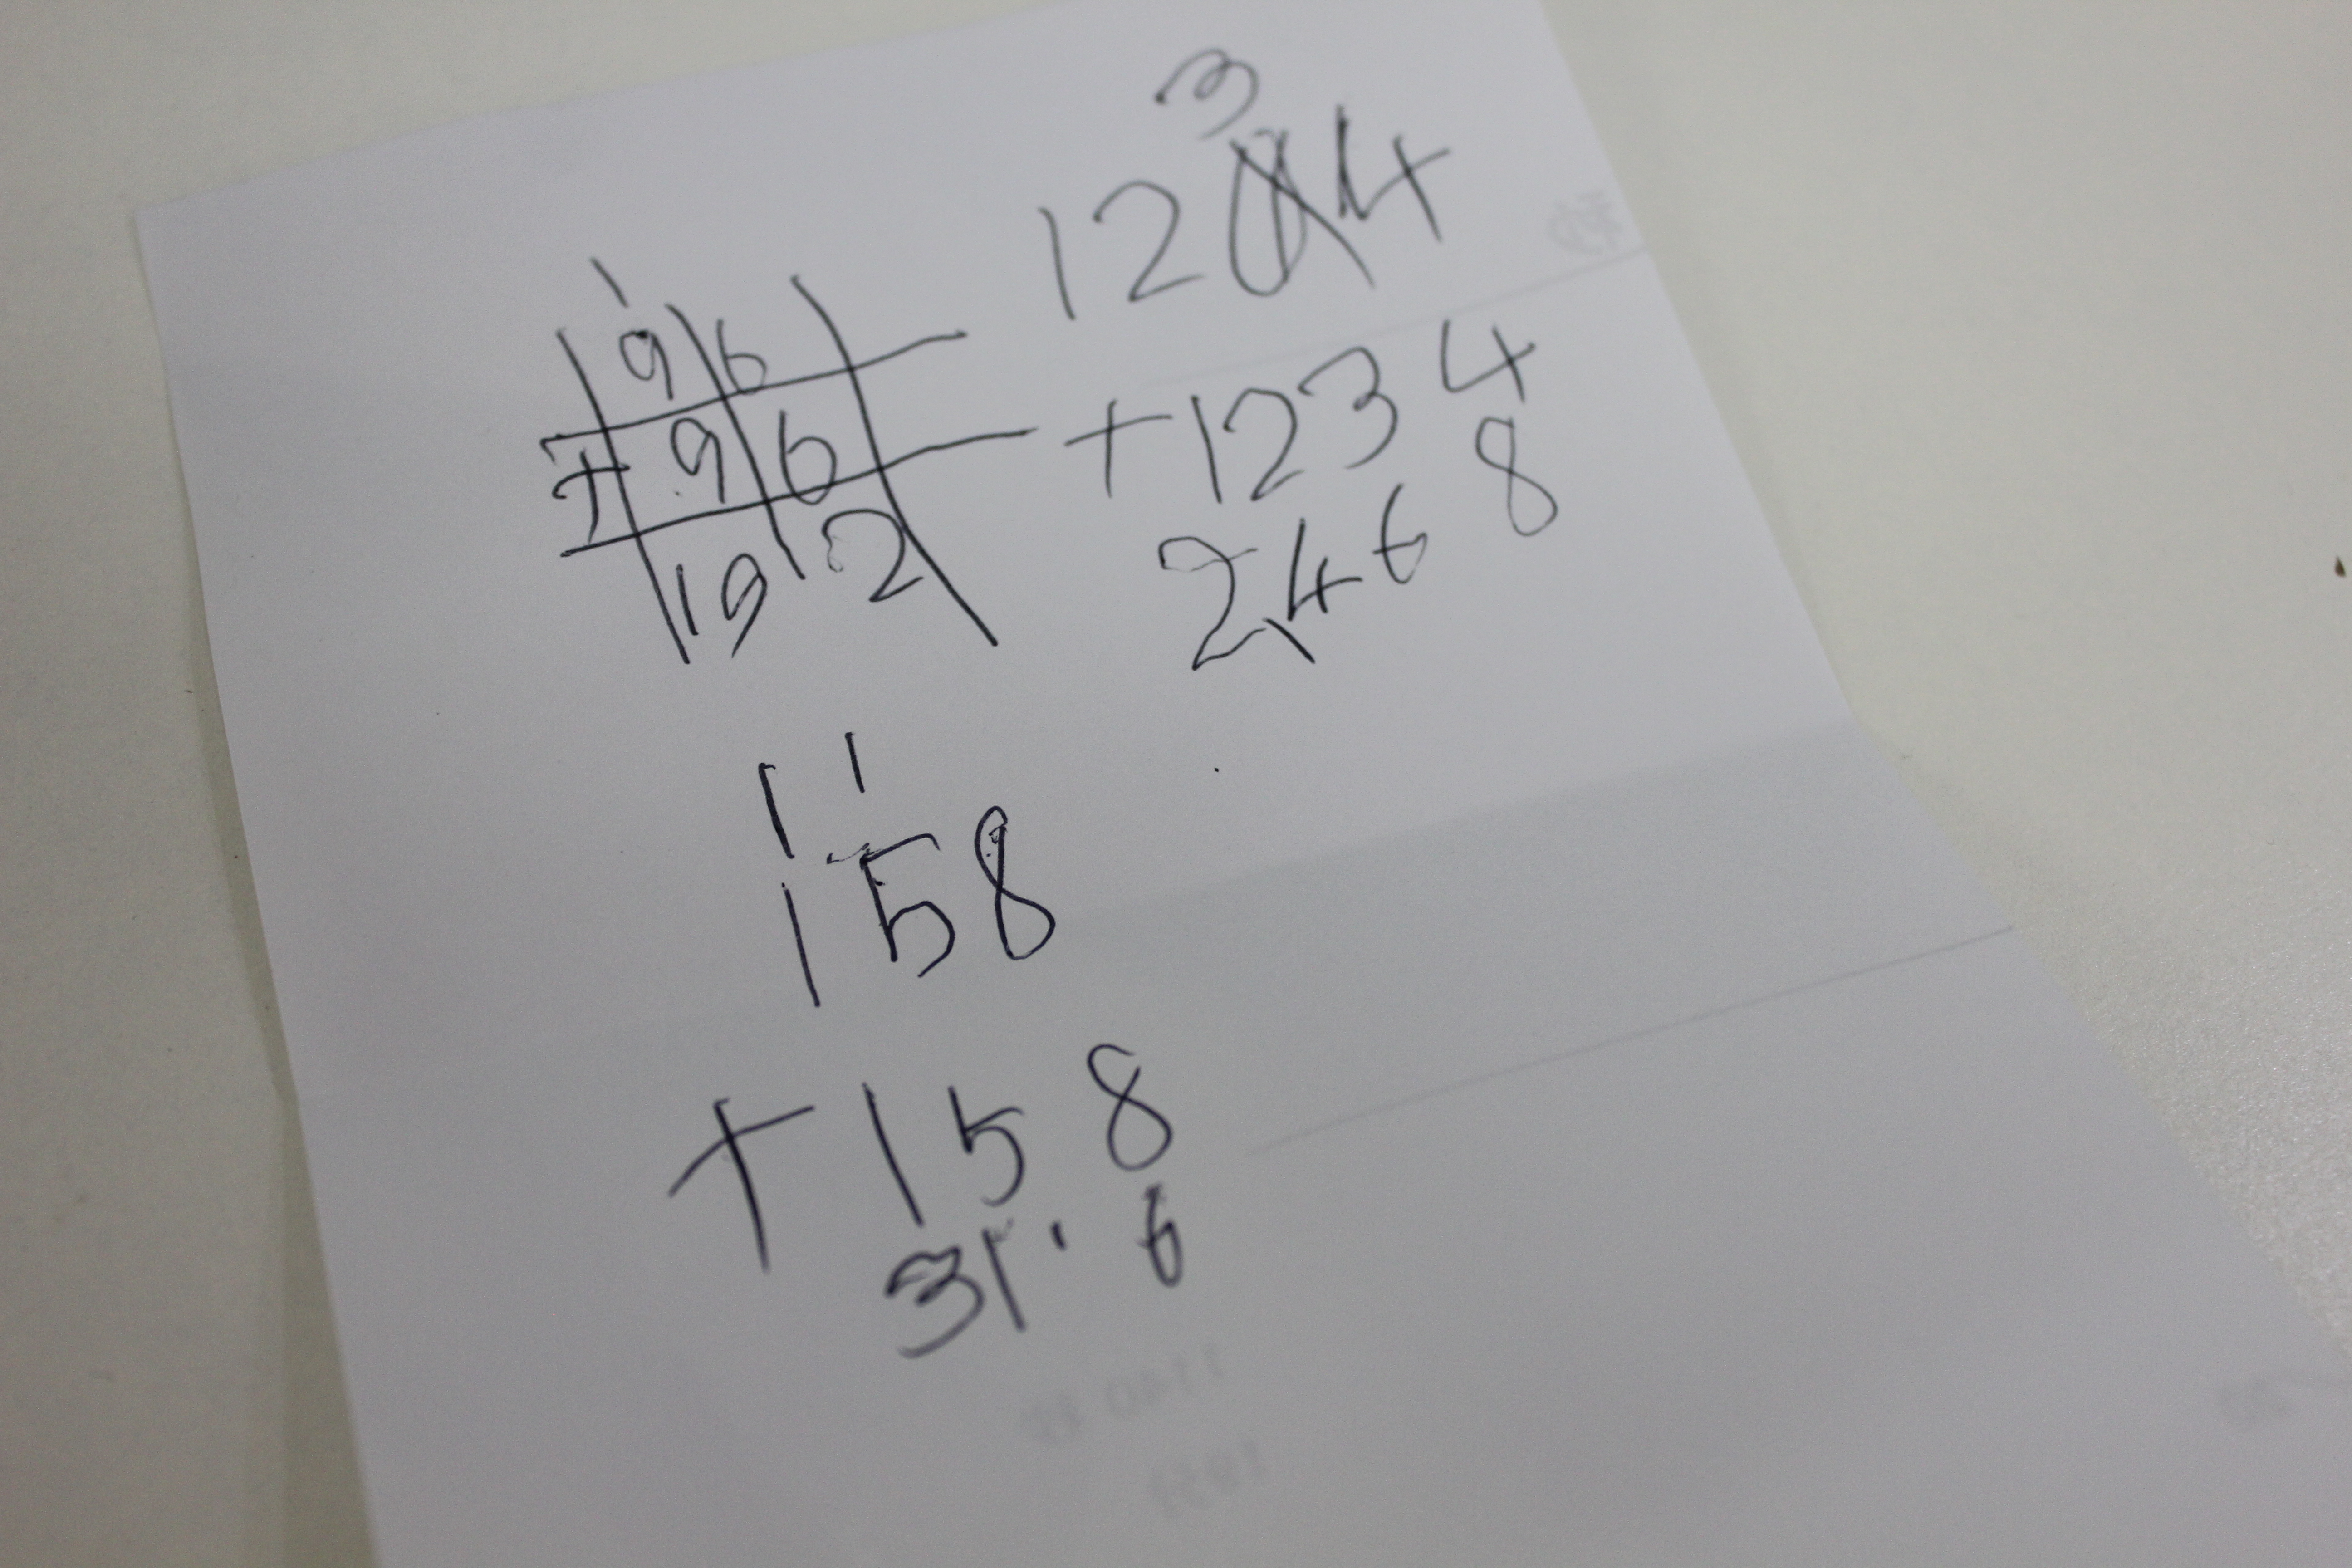 1
9 6
+ 9 6
19 2
3
12 4
+ 1 2 3 4
2,4 6 8
1 1
1 5 8
+ 1 5 8
31 6